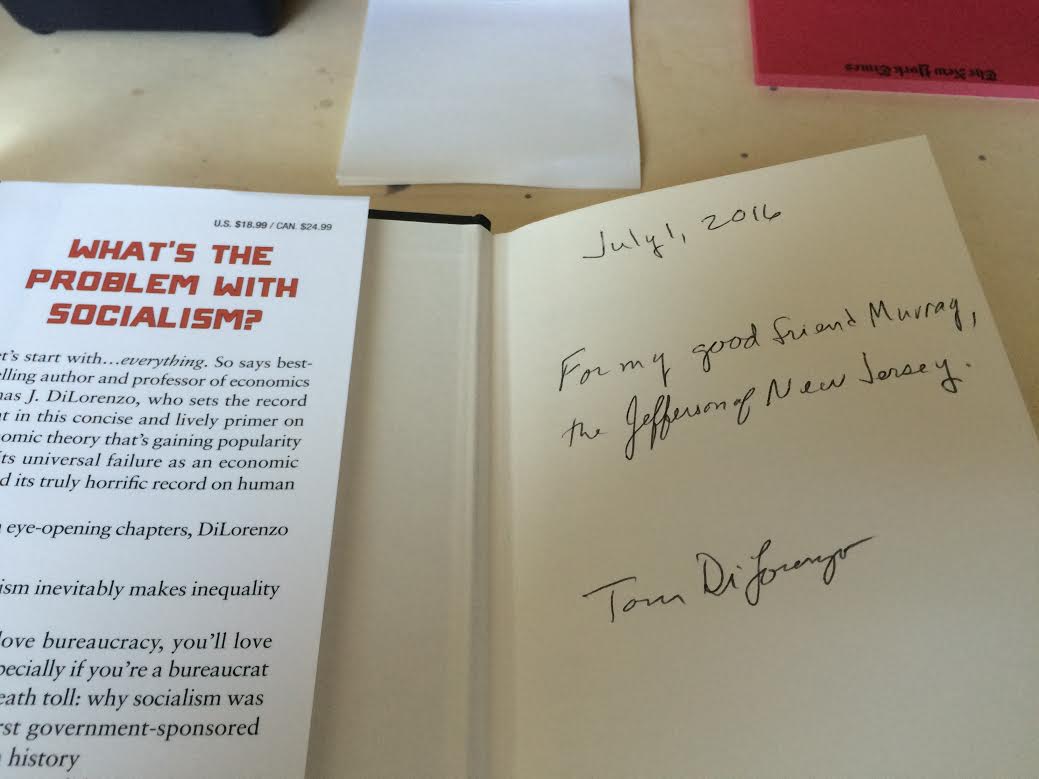 The New York Times
U.S. $18.99 / CAN. $24.99
WHAT'S THE
PROBLEM WITH
SOCIALISM?
et's start with…everything. So says best-
elling author and professor of economics
nas J. DiLorenzo, who sets the record
ht in this concise and lively primer on
omic theory that's gaining popularity
its universal failure as an economic
d its truly horrific record on human
eye-opening chapters, DiLorenzo
ism inevitably makes inequality
love bureaucracy, you'll love
pecially if you're a bureaucrat
eath toll: why socialism was
rst government-sponsored
history
July 1, 2016
For my good friend Murray,
the Jefferson of New Jersey.
Tom DiLorenzo